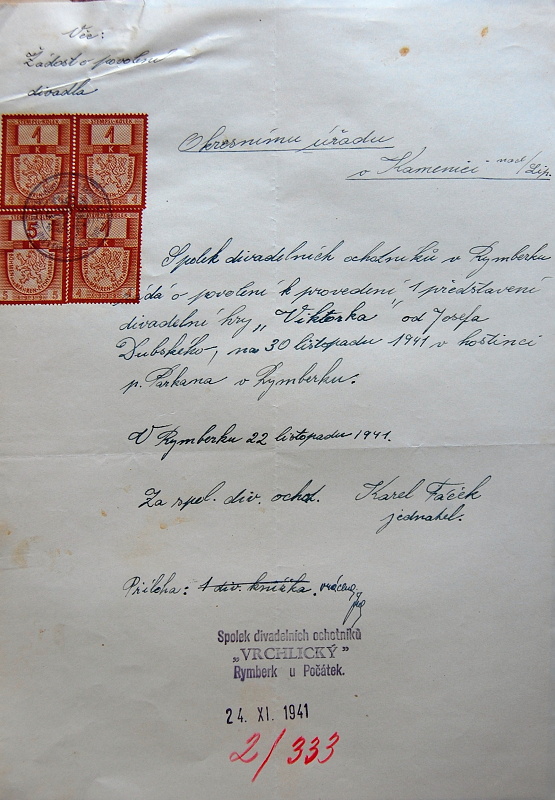 Věc:
Žádost o povolení
divadla
STEMPEL-KOLEK
1
K
4
1
K
4
5
5
5
1
K
4
4
Okresnímu úřadu
v Kamenici nad/Lip.
Spolek divadelních ochotníků v Rymberku
žádá o povolení k provedení 1 představení
divadelní hry „Viktorka" od Josefa
Dubského, na 30 listopadu 1941 v hostinci
p. Parkana v Rymberku.
V Rymberku 22 listopadu 1941.
Za spol. div. ochot. Karel Fáček
jednatel.
Příloha: 1 div. knížka. vrácena
Spolek divadelních ochotníků
„VRCHLICKÝ"
Rymberk u Počátek.
24. XI. 1941
2/333